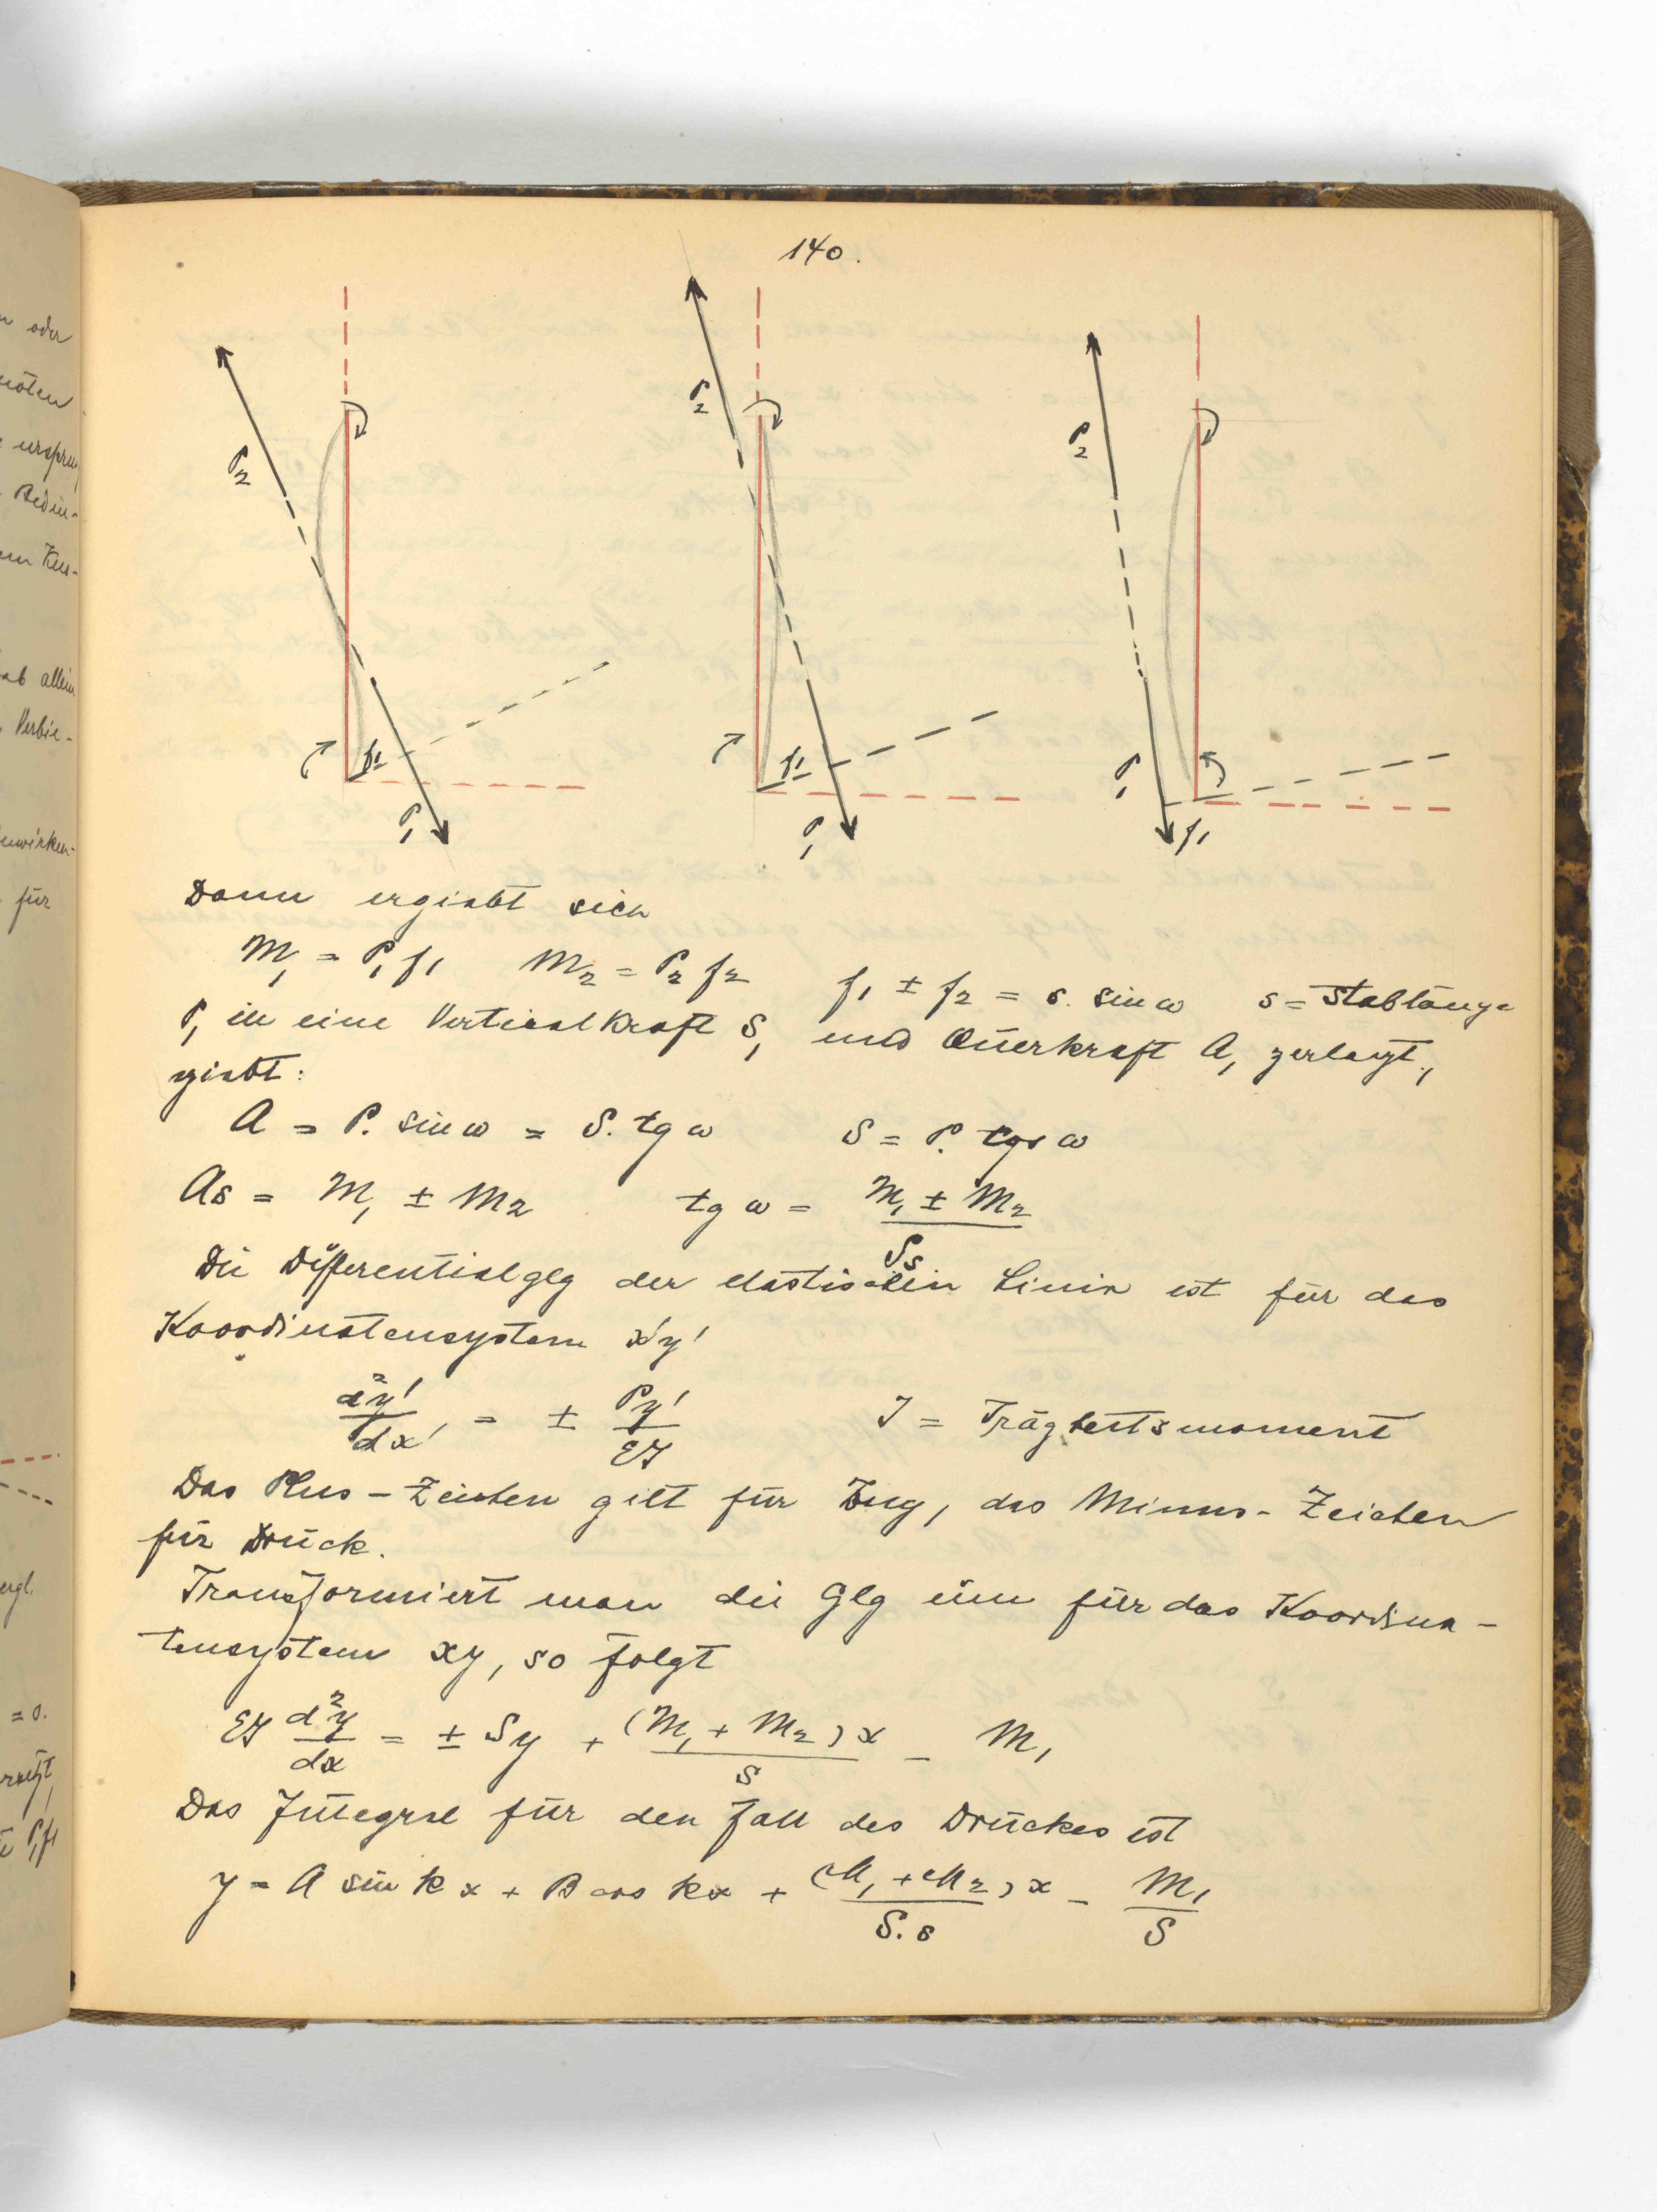 n oder
nöten
e ursprü
Bedin-
ab allein
Verbie-
enwirken-
für
ergl.
= 0.
ersetzt,
P₁f₁
140.
P₂ P₂ P₂
f₁ f₁
P₁ P₁ P₁ f₁
Dann ergiebt sich
M₁ = P₁ f₁ M₂ = P₂ f₂ f₁ ± f₂ = s. sin ω s = Stablänge
P₁ in eine Vertical Kraft S₁ und Querkraft A₁ zerlegt,
giebt:
A = P. sin ω = S. tg ω S = P. cos ω
As = M₁ ± M₂ tg ω = (M₁ ± M₂)/Ss
Die Differentialglg der elastischen Linie ist für das
Koordinatensystem x'y'
d²y'/dx' = ± Py'/EJ J = Trägheitsmoment
Das Plus-Zeichen gilt für Zug, das Minus-Zeichen
für Druck.
Transformiert man die Glg um für das Koordina-
tensystem xy, so folgt
EJ d²y/dx = ± Sy + (M₁ + M₂)x/s - M₁
Das Integral für den Fall des Druckes ist
y = A sin kx + B cos kx + (M₁ + M₂)x/S.s - M₁/S